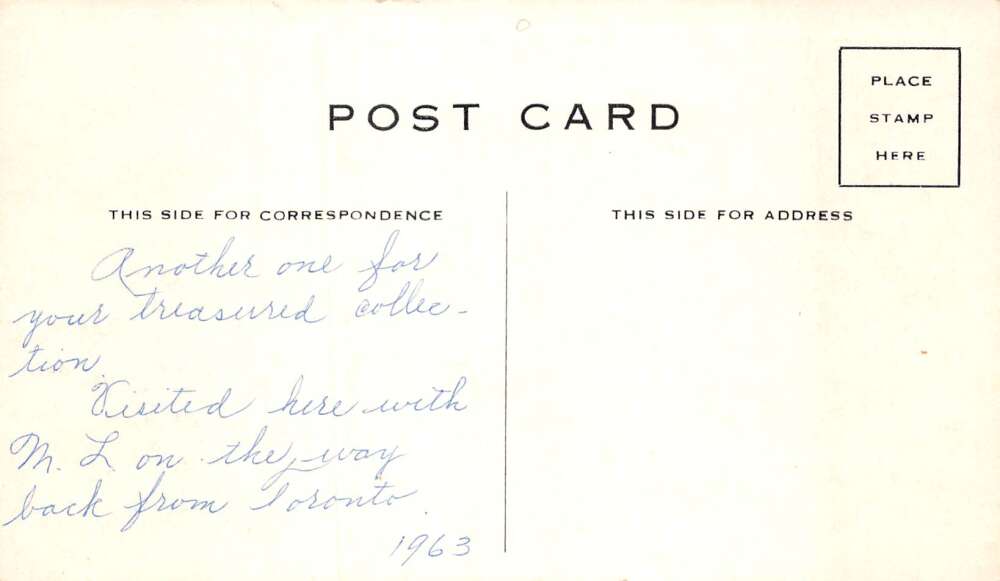 POST CARD
PLACE
STAMP
HERE
THIS SIDE FOR CORRESPONDENCE
THIS SIDE FOR ADDRESS
Another one for
your treasured collec-
tion.
Visited here with
M. L. on the way
back from Toronto.
1963